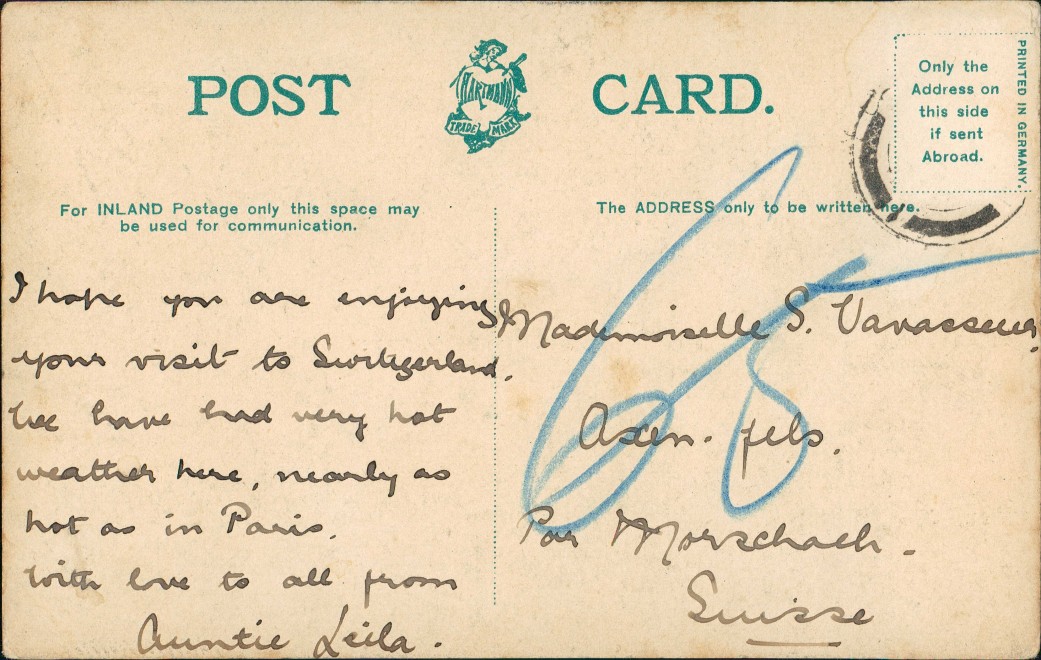 POST CARD.
HARTMANN
TRADE MARK
Only the
Address on
this side
if sent
Abroad.
PRINTED IN GERMANY.
For INLAND Postage only this space may
be used for communication.
The ADDRESS only to be written here.
I hope you are enjoying
your visit to Switzerland.
We have had very hot
weather here, nearly as
hot as in Paris.
With love to all from
Auntie Leila.
Mademoiselle S. Vavasseur,
Axen-fels,
Par Morschach-
Suisse